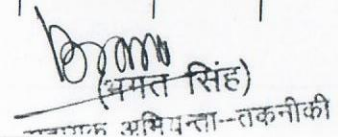 (भगत सिंह)
सहायक अभियन्ता--तकनीकी